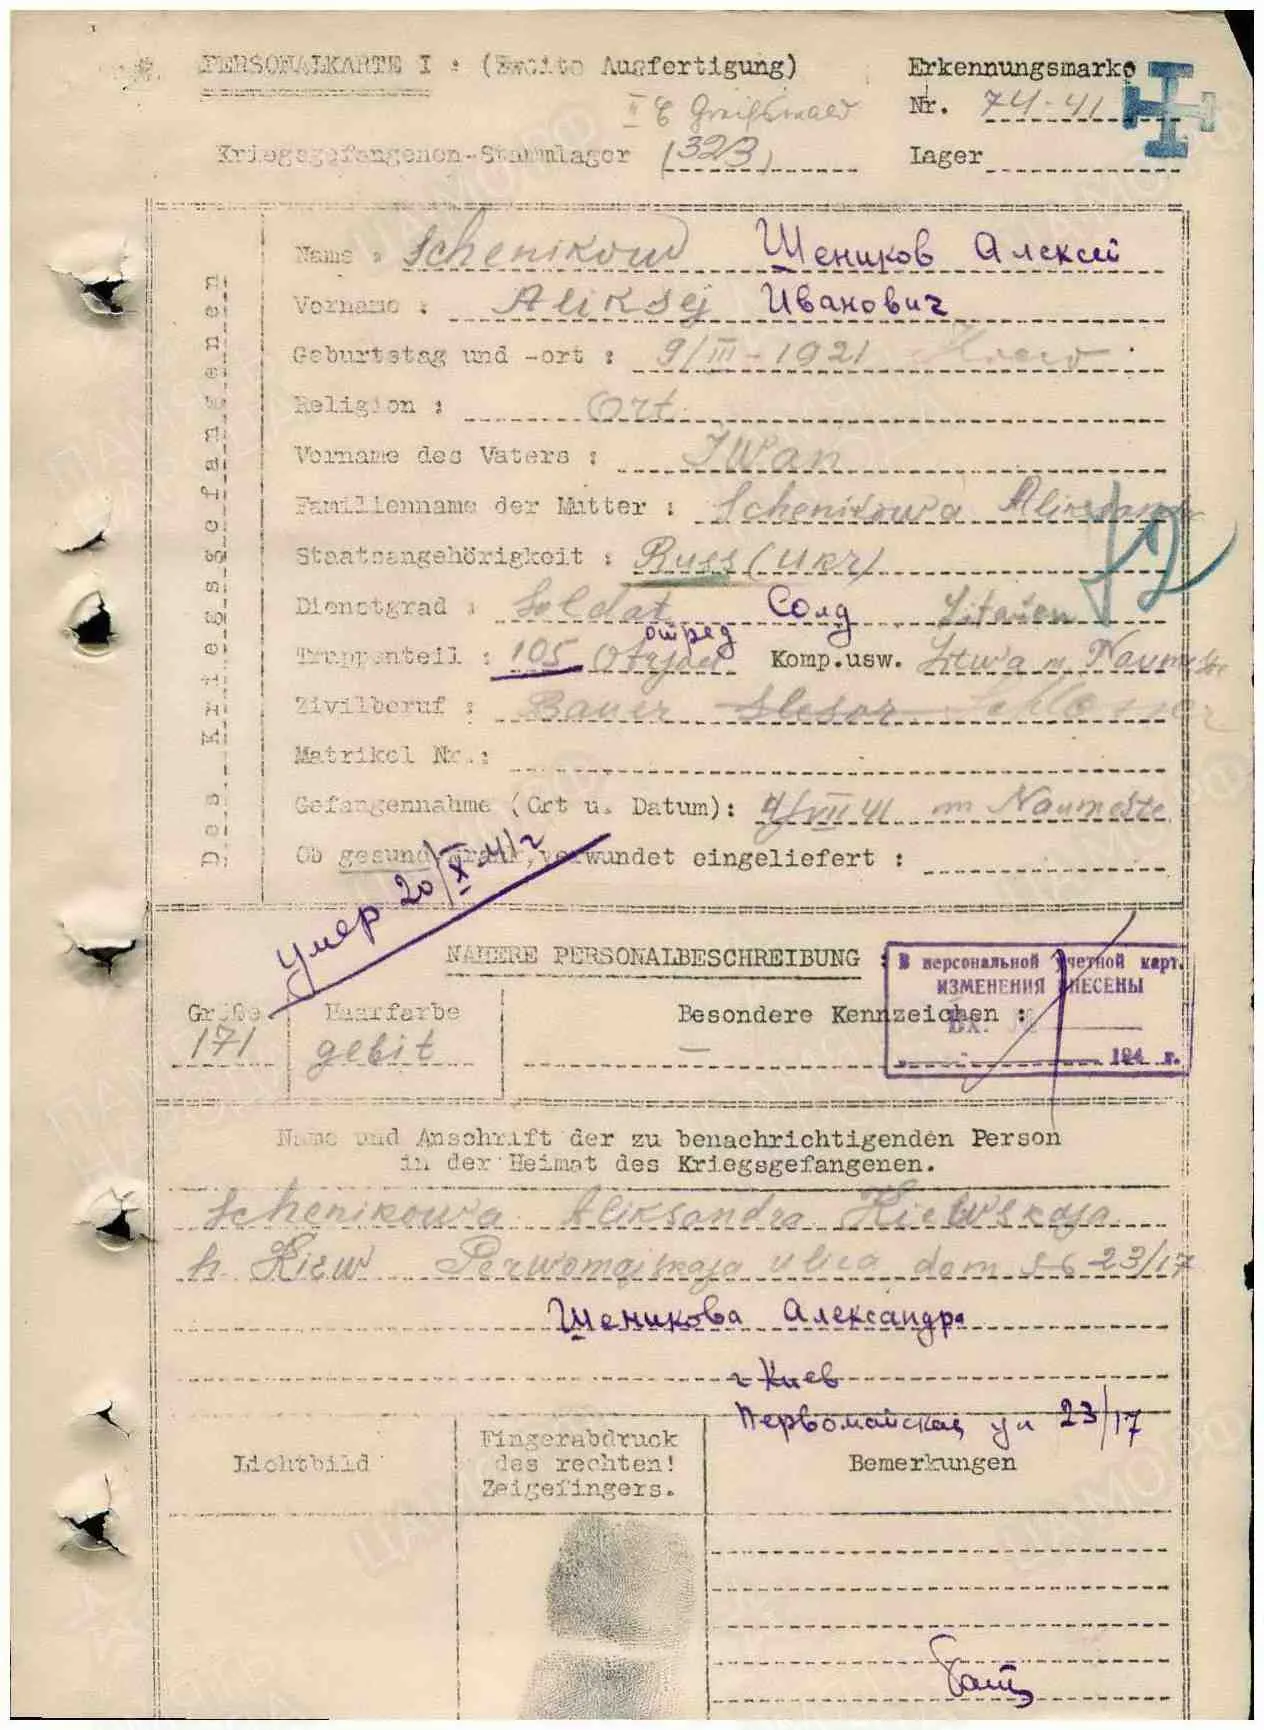 PERSONALKARTE I : (Zweite Ausfertigung) Erkennungsmarke
II C Greifswald Nr. 74-41
Kriegsgefangenen-Stammlager (323) Lager
Des Kriegsgefangenen
Name : Schenikow Шеников Алексей
Vorname : Aliksej Иванович
Geburtstag und -ort : 9/III-1921
Religion : Ort
Vorname des Vaters : Iwan
Familienname der Mutter : Schenikowa
Staatsangehörigkeit : Russ (Ukr) 12
Dienstgrad : Soldat Солд
отряд
Truppenteil : 105 Otrjad Komp.usw. Litwa m. Naumeste
Zivilberuf : Bauer Slesar Schlosser
Matrikel Nr.:
Gefangennahme (Ort u. Datum): VII 41 m Naumeste
Ob gesund, krank, verwundet eingeliefert :
умер 20/X-41 г
NÄHERE PERSONALBESCHREIBUNG :
В персональной учетной карт.
ИЗМЕНЕНИЯ ВНЕСЕНЫ
Вх. №
194 г.
Größe Haarfarbe Besondere Kennzeichen :
171 gebit –
Name und Anschrift der zu benachrichtigenden Person
in der Heimat des Kriegsgefangenen.
Schenikowa Aliksandra Kiewskaja
h. Kiew Perwomajskaja ulica dom 23/17
Шеникова Александра
г Киев
Первомайская ул 23/17
Lichtbild
Fingerabdruck
des rechten!
Zeigefingers.
Bemerkungen